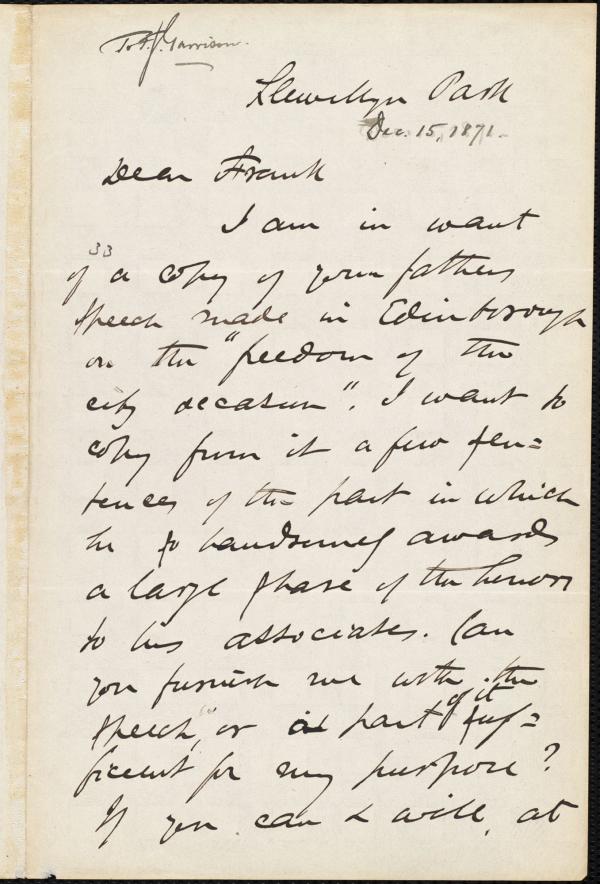 To F. J. Garrison.
Llewellyn Park
Dec. 15, 1871.
Dear Frank
I am in want
33
of a copy of your fathers
speech made in Edinborough
on the "freedom of the
city occasion". I want to
copy from it a few sen=
tences of the part in which
he so handsomely awards
a large share of the honors
to his associates. Can
you furnish me with the
speech, or a part of it suf=
ficient for my purpose?
If you can & will, at